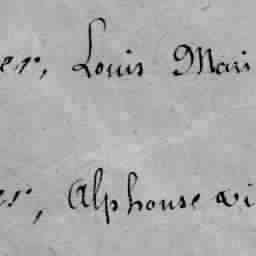 er, Louis Mari
er, Alphonse vi